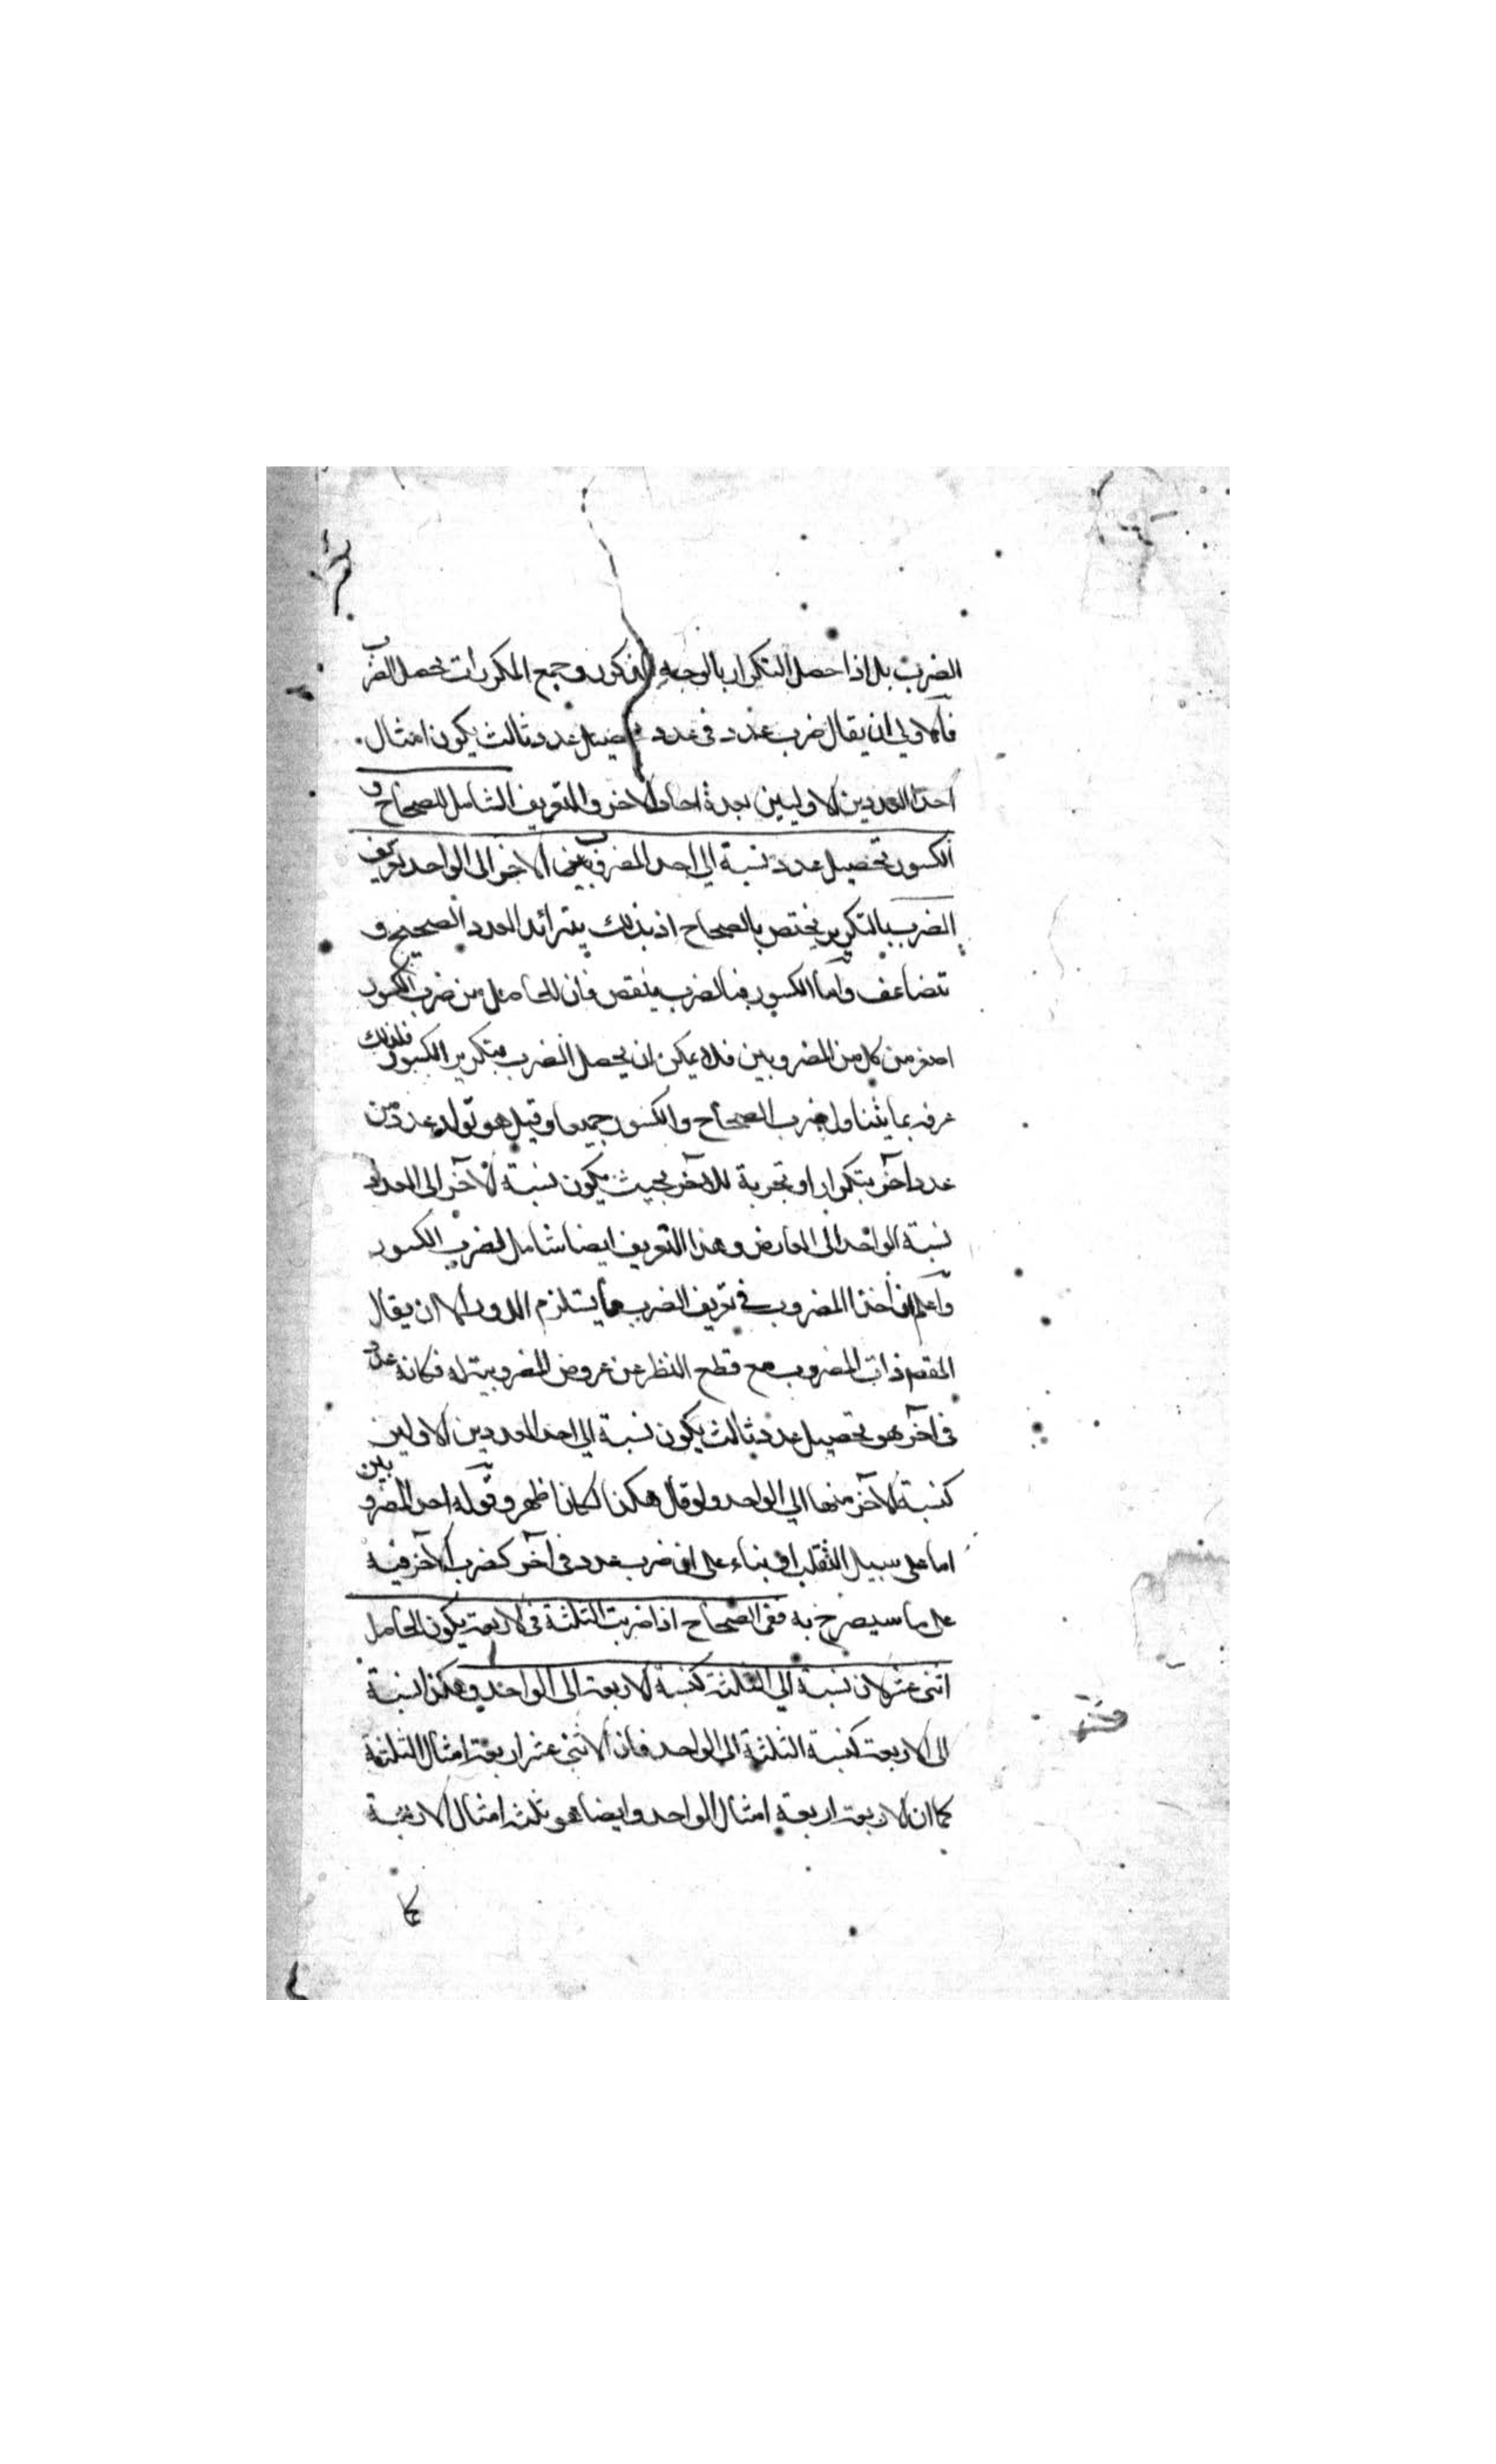 الضرب بل اذا حصل التكرار بالوجه المذكور وجمع المكررات يحصل الضرب
فالاولى ان يقال ضرب عدد فى عدد تحصيل عدد ثالث يكون امثال
احد العددين الاوليين بعدة احاد الاخر والتعريف الشامل للصحاح و
الكسور تحصيل عدد نسبة الى احد المضروبين الاخر الى الواحد تعريف
الضرب بالتكرير يختص بالصحاح اذ بذلك يتزائد العدد الصحيح و
تضاعف واما الكسور فبالضرب ينقص فان الحاصل من ضرب الكسور
اصغر من كل من المضروبين فلا يمكن ان يحصل الضرب بتكرير الكسور فلذلك
عرفه بما يتناول ضرب الصحاح والكسور جميعا وقيل هو تولد عدد من
عدد آخر بتكرار او تجزية للآخر بحيث يكون نسبة الآخر الى العدد
نسبة الواحد الى العارض وهذا التعريف ايضا شامل لضرب الكسور
واعلم ان اخذ المضروب فى تعريف الضرب مما يستلزم الدور الا ان يقال
المقصد ذات المضروب مع قطع النظر عن عروض المضروبية له فكانه عدد
فى آخر هو تحصيل عدد ثالث يكون نسبة الى احد العددين الاولين
كنسبة الآخر منهما الى الواحد ولو قال هكذا لكان اظهر وقوله احد المضروبين
اما على سبيل التقلب او بناء على ان ضرب عدد فى آخر كضرب الآخر فيه
على ما سيصرح به ففى الصحاح اذا ضربت الثلثة فى الاربعة يكون الحاصل
اثنى عشر لان نسبة الى الثلثة كنسبة الاربعة الى الواحد وهكذا نسبة
الى الاربعة كنسبة الثلثة الى الواحد فان الاثنى عشر اربعة امثال الثلثة
كما ان الاربعة اربعة امثال الواحد وايضا هو ثلثة امثال الاربعة
كما